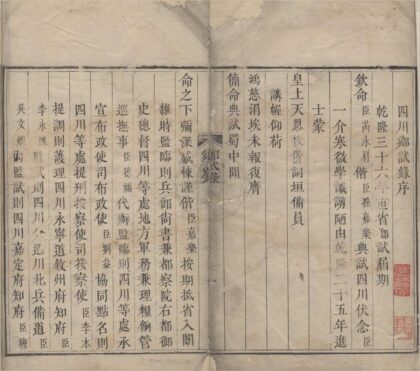 四川鄉試錄序
乾隆三十六年直省鄉試屆期
欽命臣芮永肩偕臣嘉樂典試四川伏念臣
一介寒微學識譾陋由乾隆二十五年進
士蒙
皇上天恩詞垣備員
講幄仰荷
鴻慈涓埃未報復膺
簡命典試蜀中聞
鄉試錄
命之下彌深感悚謹偕臣嘉樂按期抵省入闈
維時監臨則兵部尚書兼都察院右都御
史總督四川等處地方軍務兼理糧餉管
巡撫事臣德福代辦監臨則四川等處承
宣布政使司布政使臣劉益協同點名則
四川等處提刑按察使司按察使臣李本
提調則護理四川永寧道敘州府知府
臣李永祺監試則四川分巡川北兵備道臣
吳文內監試則四川嘉定府知府臣